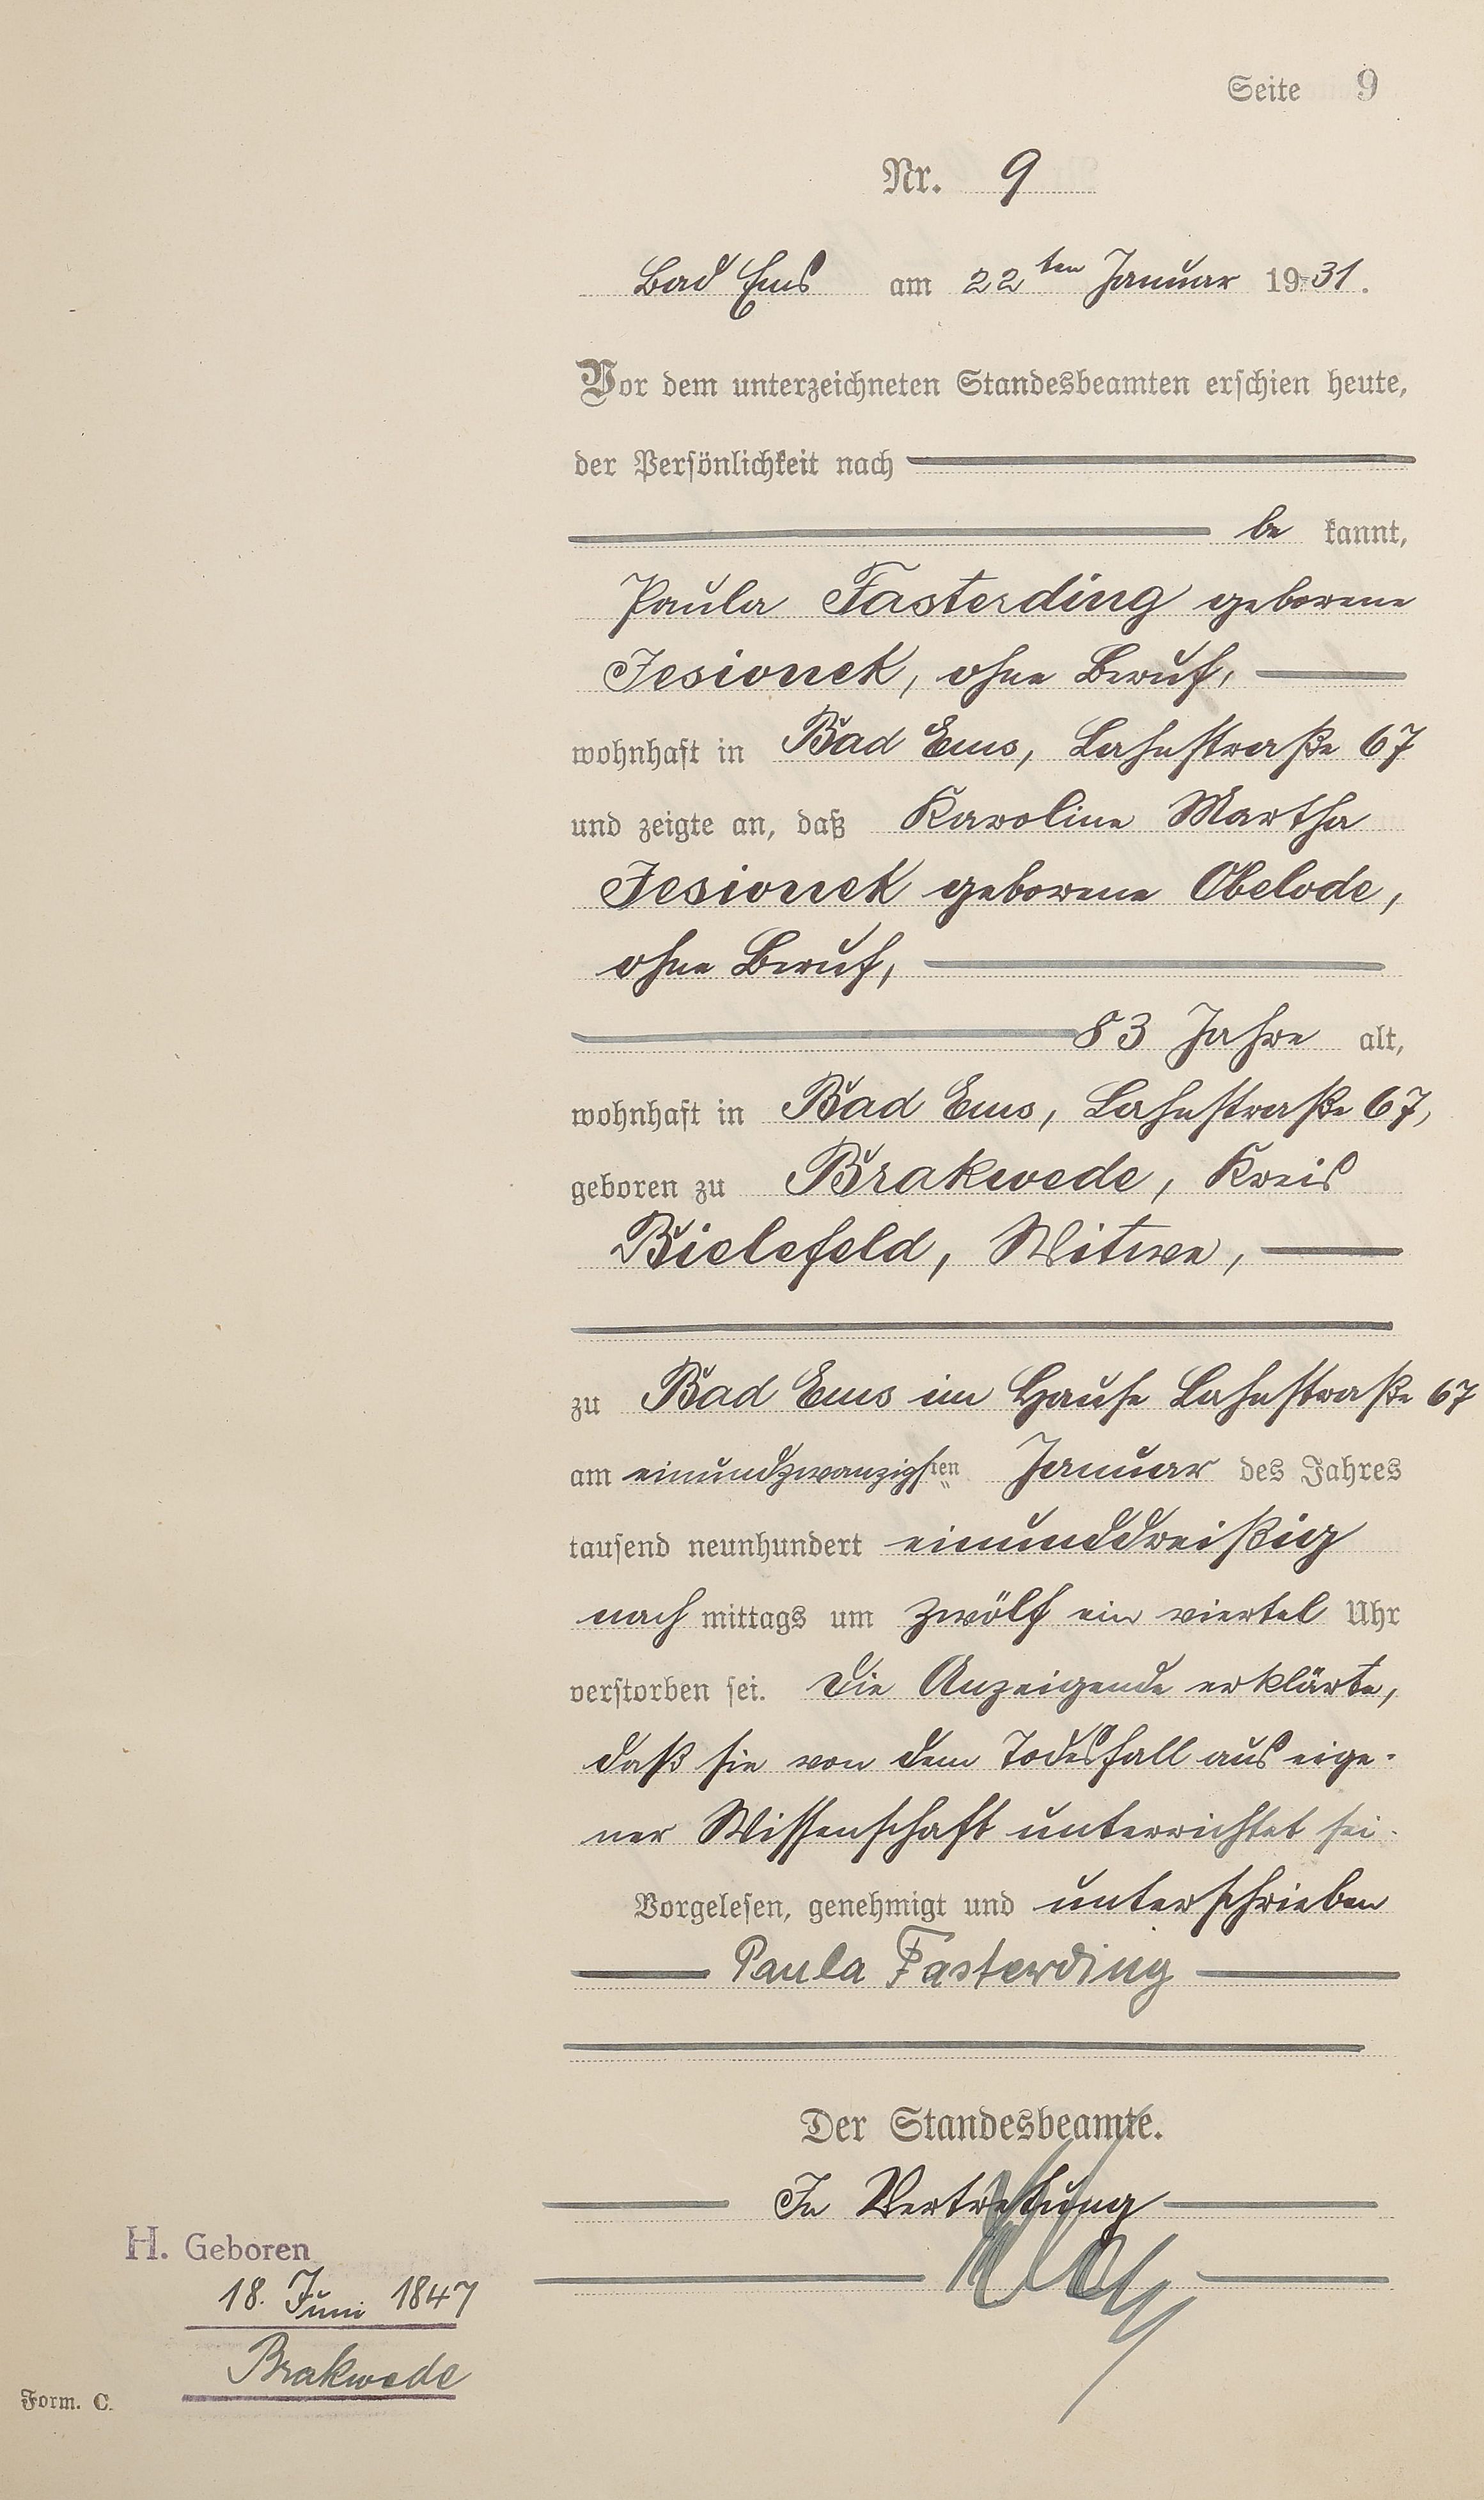 Seite 9
Nr. 9
Bad Ems am 22ten Januar 1931.
Vor dem unterzeichneten Standesbeamten erschien heute,
der Persönlichkeit nach
be kannt,
Paula Fasterding geborene
Jesionek, ohne Beruf,
wohnhaft in Bad Ems, Lahnstraße 67
und zeigte an, daß Karoline Martha
Jesionek geborene Obelode,
ohne Beruf,
83 Jahre alt,
wohnhaft in Bad Ems, Lahnstraße 67,
geboren zu Brakwede, Kreis
Bielefeld, Witwe,
zu Bad Ems im Hause Lahnstraße 67
am einundzwanzigsten Januar des Jahres
tausend neunhundert einunddreißig
nach mittags um zwölf ein viertel Uhr
verstorben sei. Die Anzeigende erklärte,
daß sie von dem Todesfall aus eige-
ner Wissenschaft unterrichtet sei.
Vorgelesen, genehmigt und unterschrieben
Paula Fasterding
Der Standesbeamte.
In Vertretung
H. Geboren
18. Juni 1847
Brakwede
Form. C.